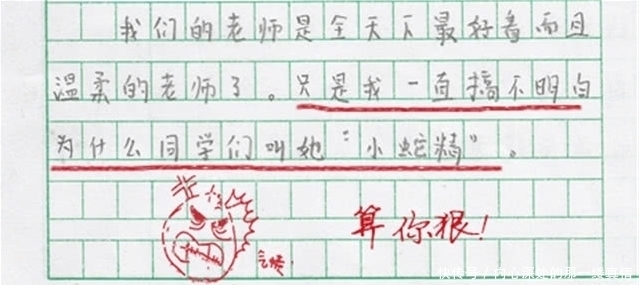 我们的老师是全天下最好看而且
温柔的老师了。只是我一直搞不明白
为什么同学们叫她"小蛇精"。
算你狠!